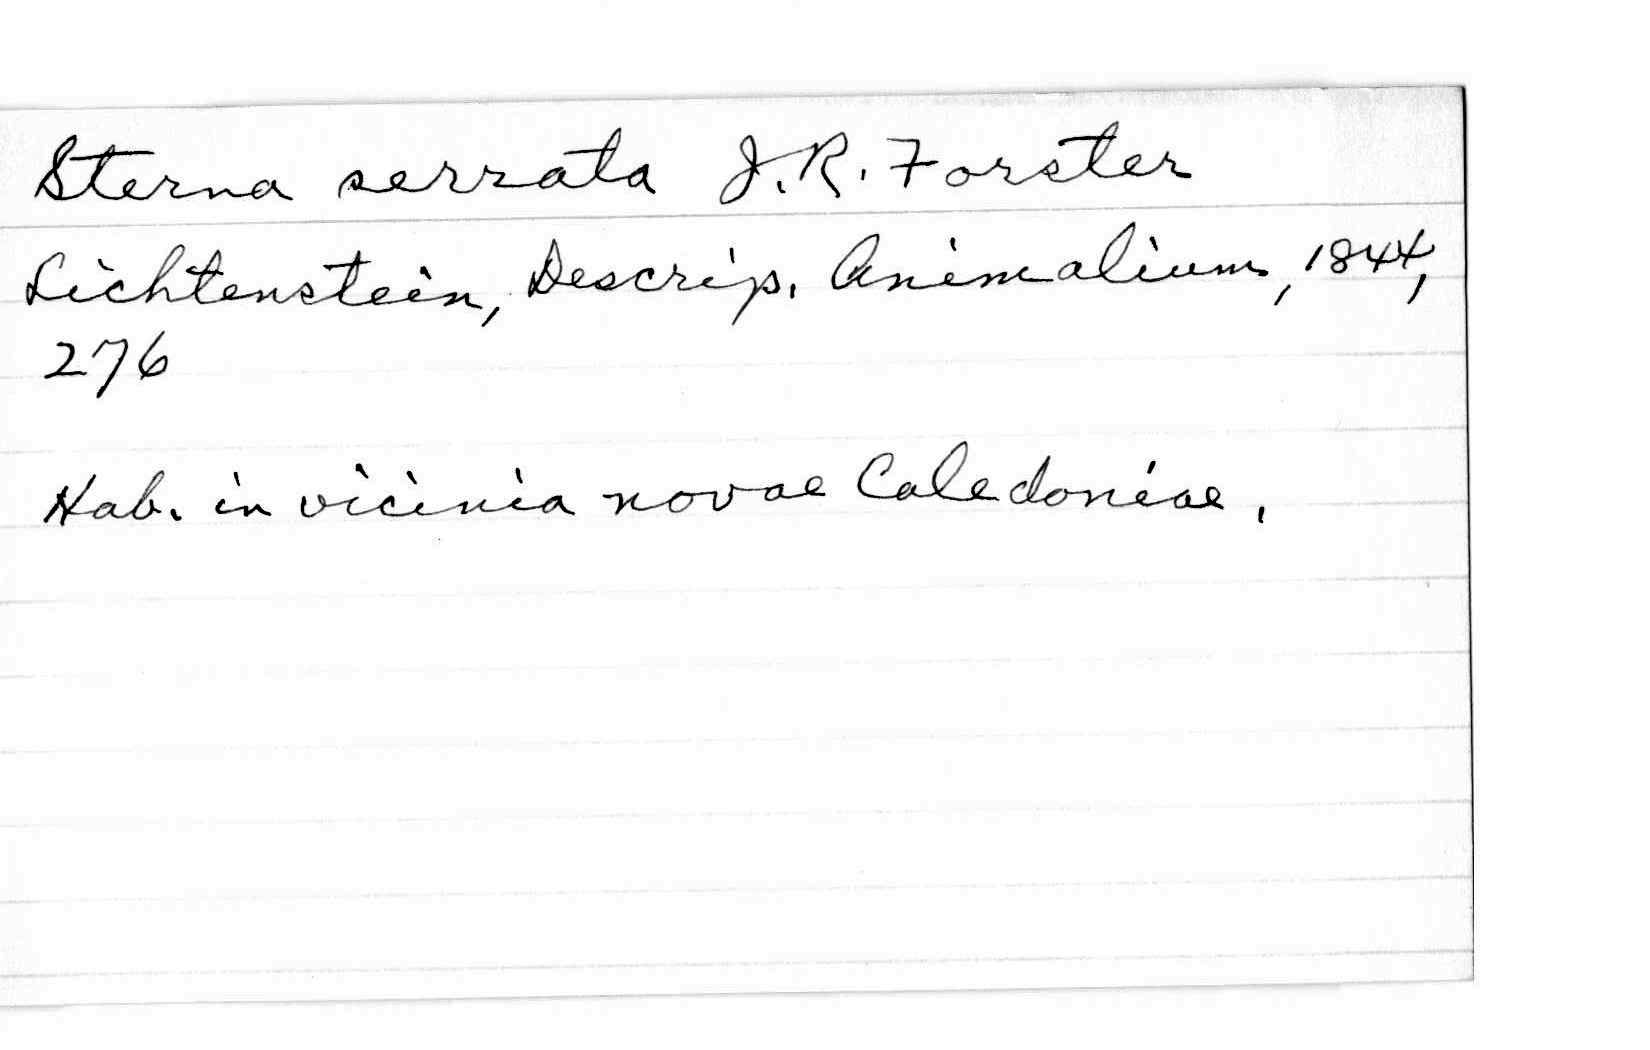 Sterna serrata J.R. Forster
Lichtenstein, Descrip. Animalium, 1844,
276
Hab. in vicinia novae Caledoniae.